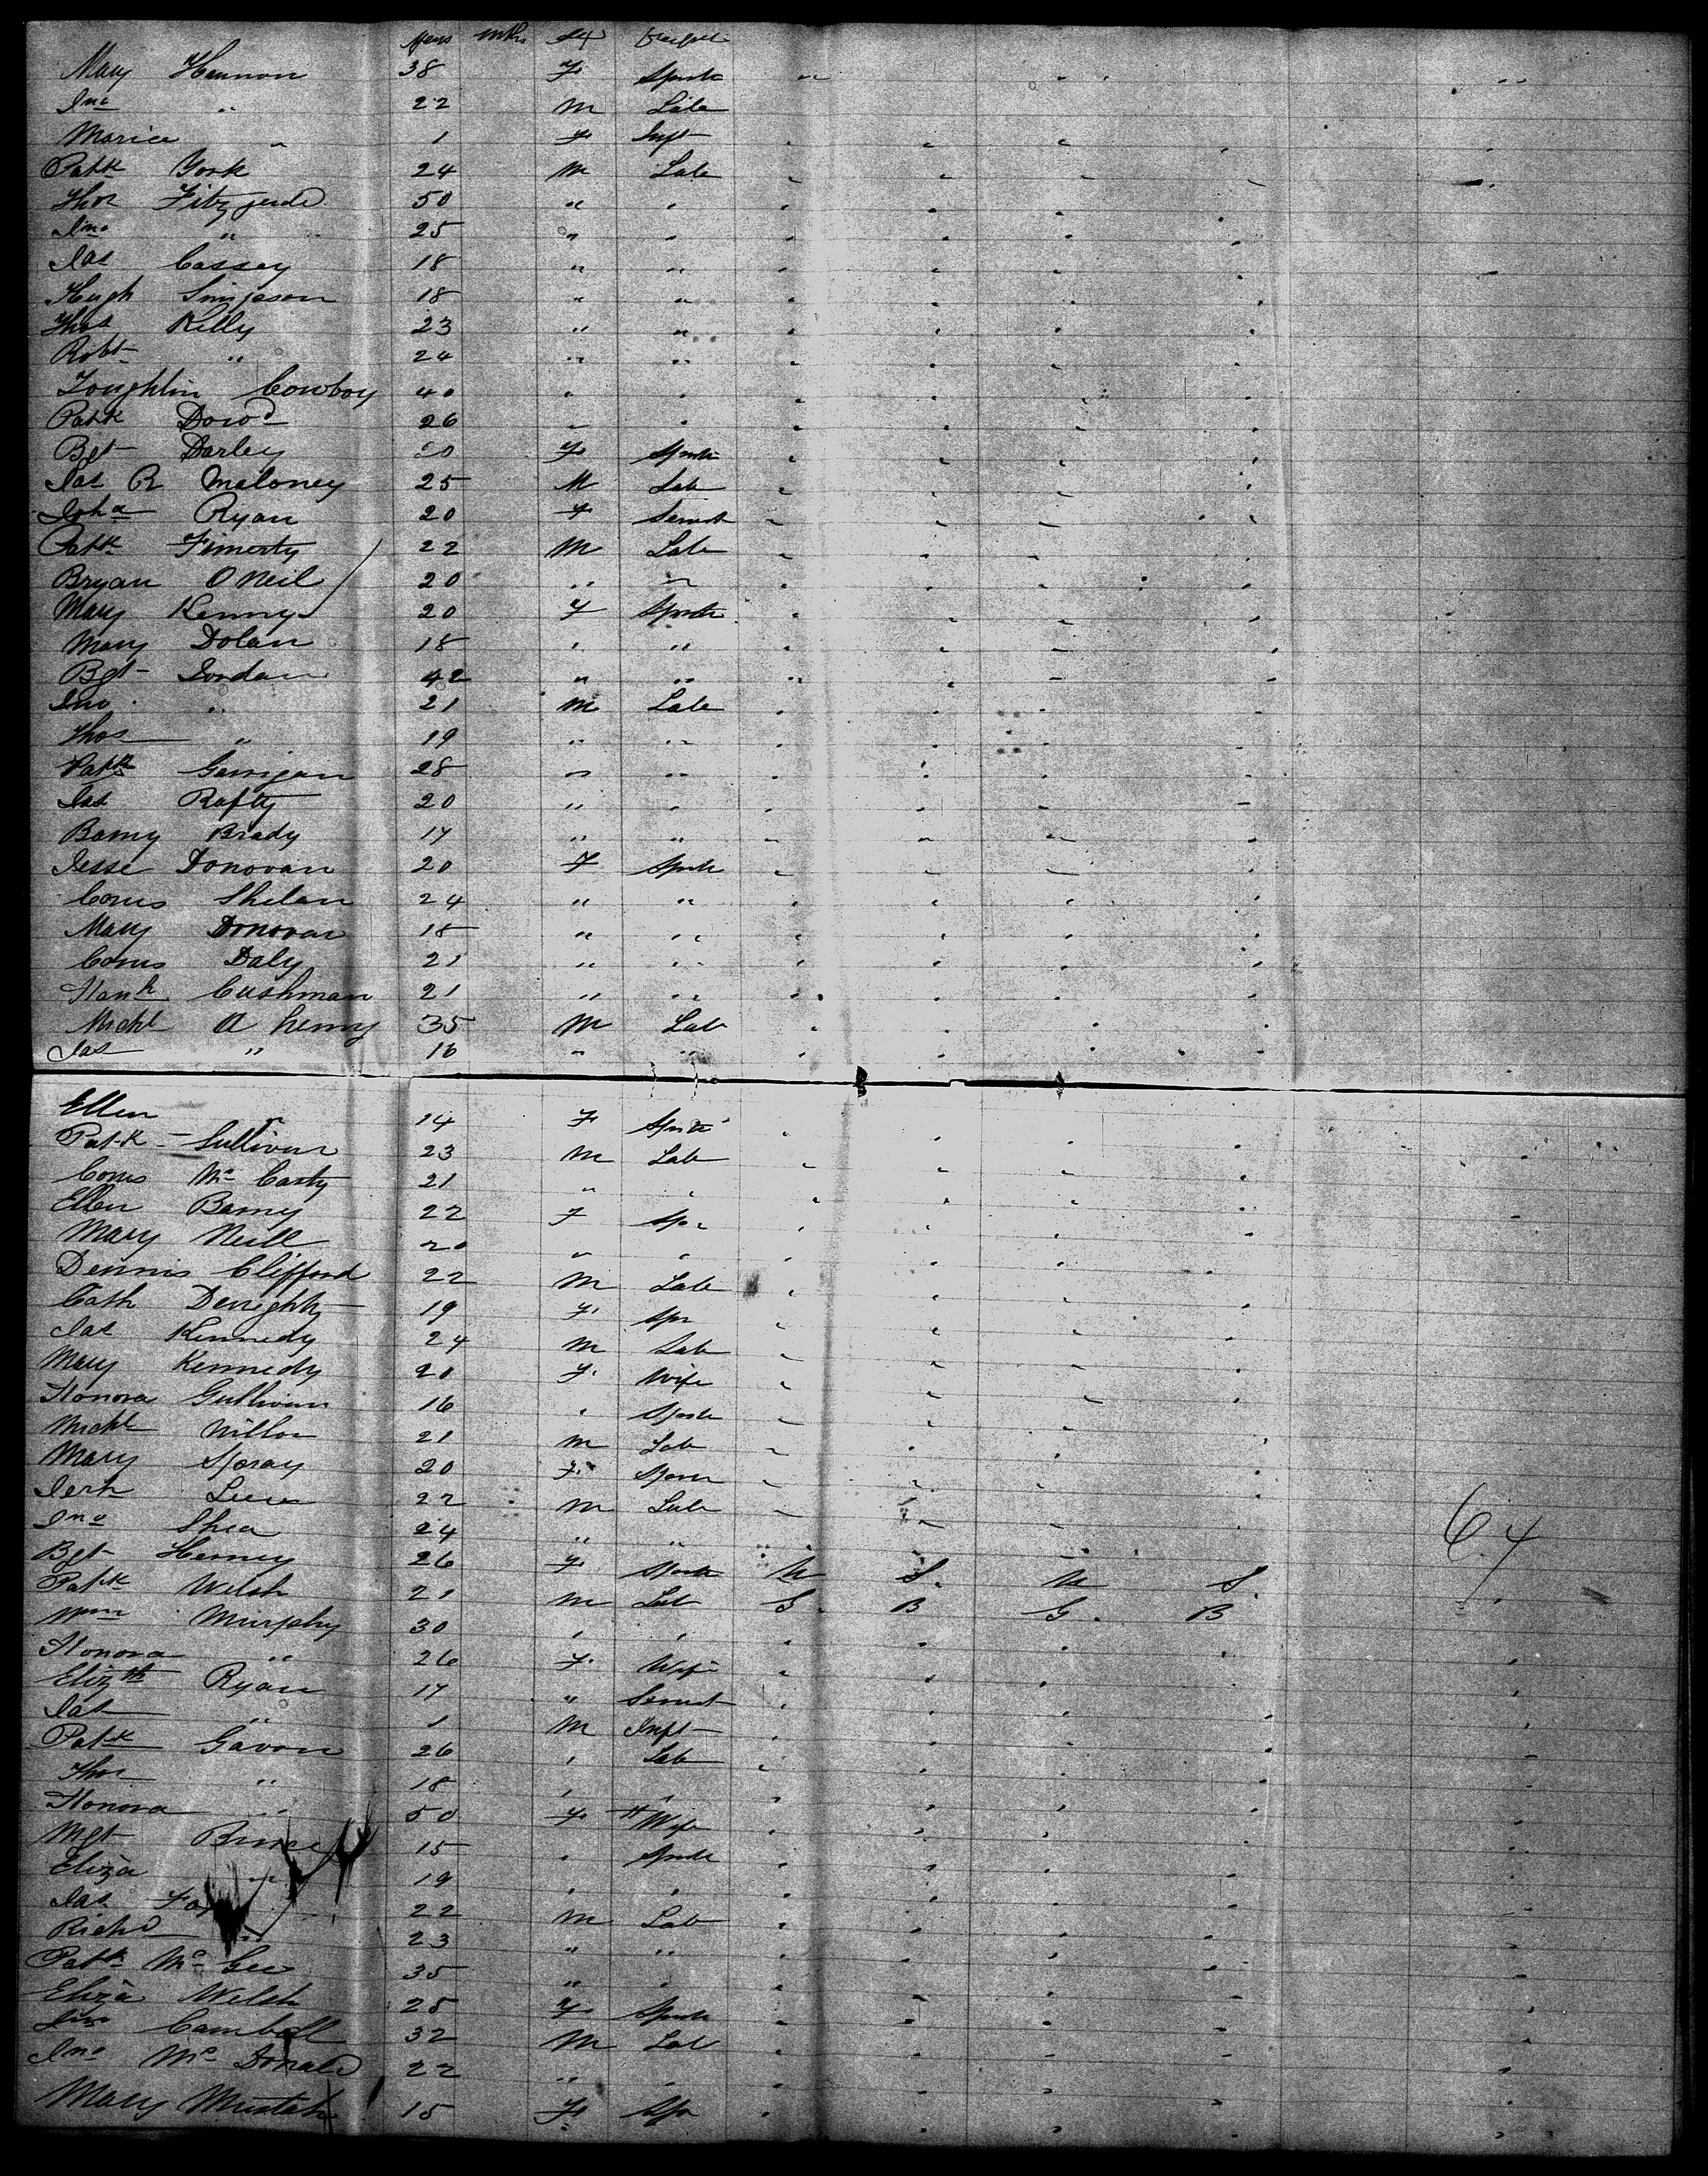 years mths Sex
Mary Hannon 38 F Spnstr
Jno " 22 M Lab
Maria " 1 F Inft
Patk York 24 M Lab
Thos Fitzgerald 50 " "
Jno " 25 " "
Jas Cassey 18 " "
Hugh Simpson 18 " "
Thos Kelly 23 " "
Robt " 24 " "
Loughlin Cowboy 40 " "
Patk Dowd 26 " "
Bgt Darley 20 F Spnstr
Jas R Meloney 25 M Lab
Joha Ryan 20 F Servnt
Patk Finnerty 22 M Lab
Bryan O Neil 20 " "
Mary Kenny 20 F Spnstr
Mary Dolan 18 " "
Bgt Jordan 42 " "
Jno " 21 M Lab
Thos " 19 " "
Patk Garrigan 28 " "
Jas Rafty 20 " "
Barny Brady 17 " "
Jesse Donovan 20 F Spnstr
Corns Shelan 24 " "
Mary Donovan 18 " "
Corns Daly 21 " "
Hanh Cushman 21 " "
Michl A henny 35 M Lab
Jas " 16 " "
Ellen 14 F Spnstr
Patk Sullivan 23 M Lab
Corns Mc Carty 21 " "
Ellen Barny 22 F Spr
Mary Neill 20 " "
Dennis Clifford 22 M Lab
Cath Denighty 19 F Spr
Jas Kennedy 24 M Lab
Mary Kennedy 20 F Wife
Honora Gullivan 16 " Spnstr
Michl Nillon 21 M Lab
Mary Spray 20 F Spnr
Jerh 22 M Lab
Jno Shea 24 " "
Bgt Herney 26 F Spnstr U S. U S.
Patk Welsh 21 M Lab G. B G. B
Wm Murphy 30 " "
Honora " 26 F Wife
Elizth Ryan 17 " Servnt
Jas " 1 M Inft
Patk Gavon 26 " Lab
Thos " 18 " "
Honora " 50 F Wife
Mgt 15 " Spnstr
Eliza " 19 " "
Jas Fox 22 M Lab
Richd " 23 " "
Patk Mc Gee 35 " "
Eliza Welsh 25 F Spnstr
Jno Cambell 32 M Lab
Jno Mc Donald 22 " "
Mary 15 F Spr
64